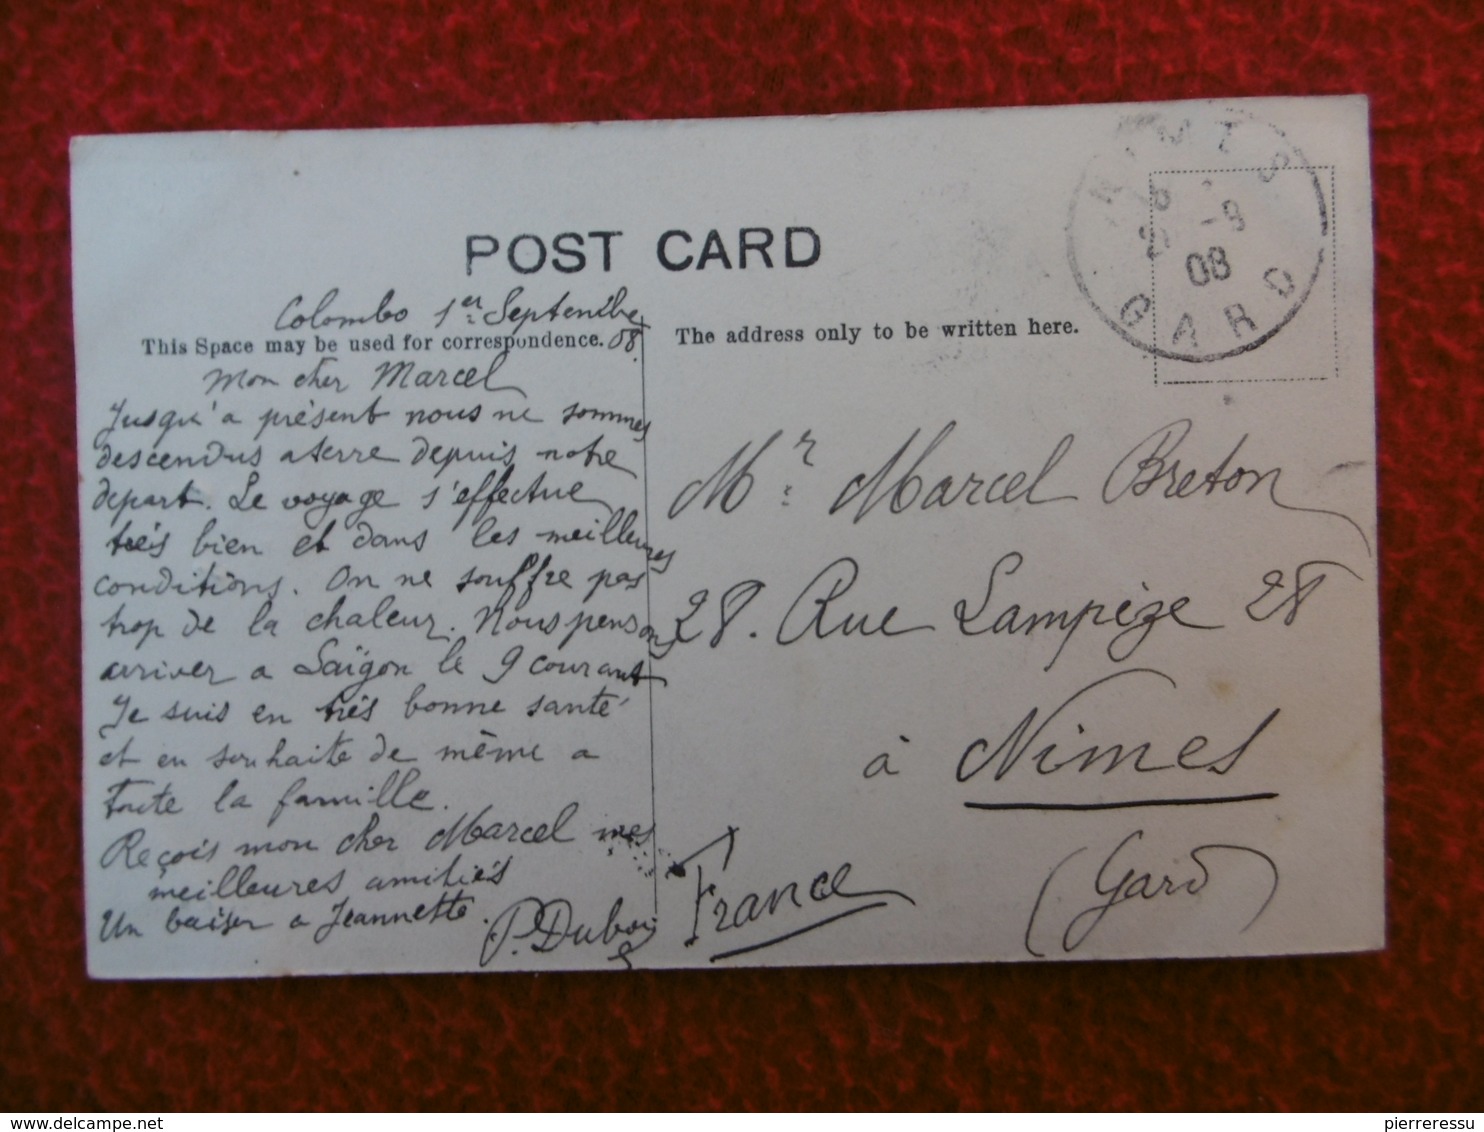 POST CARD
Colombo 1er Septembre
This Space may be used for correspondence. 08.
Mon cher Marcel
Jusqu'a présent nous ne sommes
descendus a terre depuis notre
depart. Le voyage s'effectue
très bien et dans les meilleures
conditions. On ne souffre pas
trop de la chaleur. Nous pensons
arriver a Saïgon le 9 courant
Je suis en très bonne santé
et en souhaite de même a
toute la famille.
Reçois mon cher Marcel mes
meilleures amitiés
Un baiser a Jeannette.
P. Dubois
The address only to be written here.
Mr Marcel Breton
28. Rue Lampèze 28
à Nimes
(Gard)
France
NIMES
-9
08
GARD
delcampe.net
pierreressu